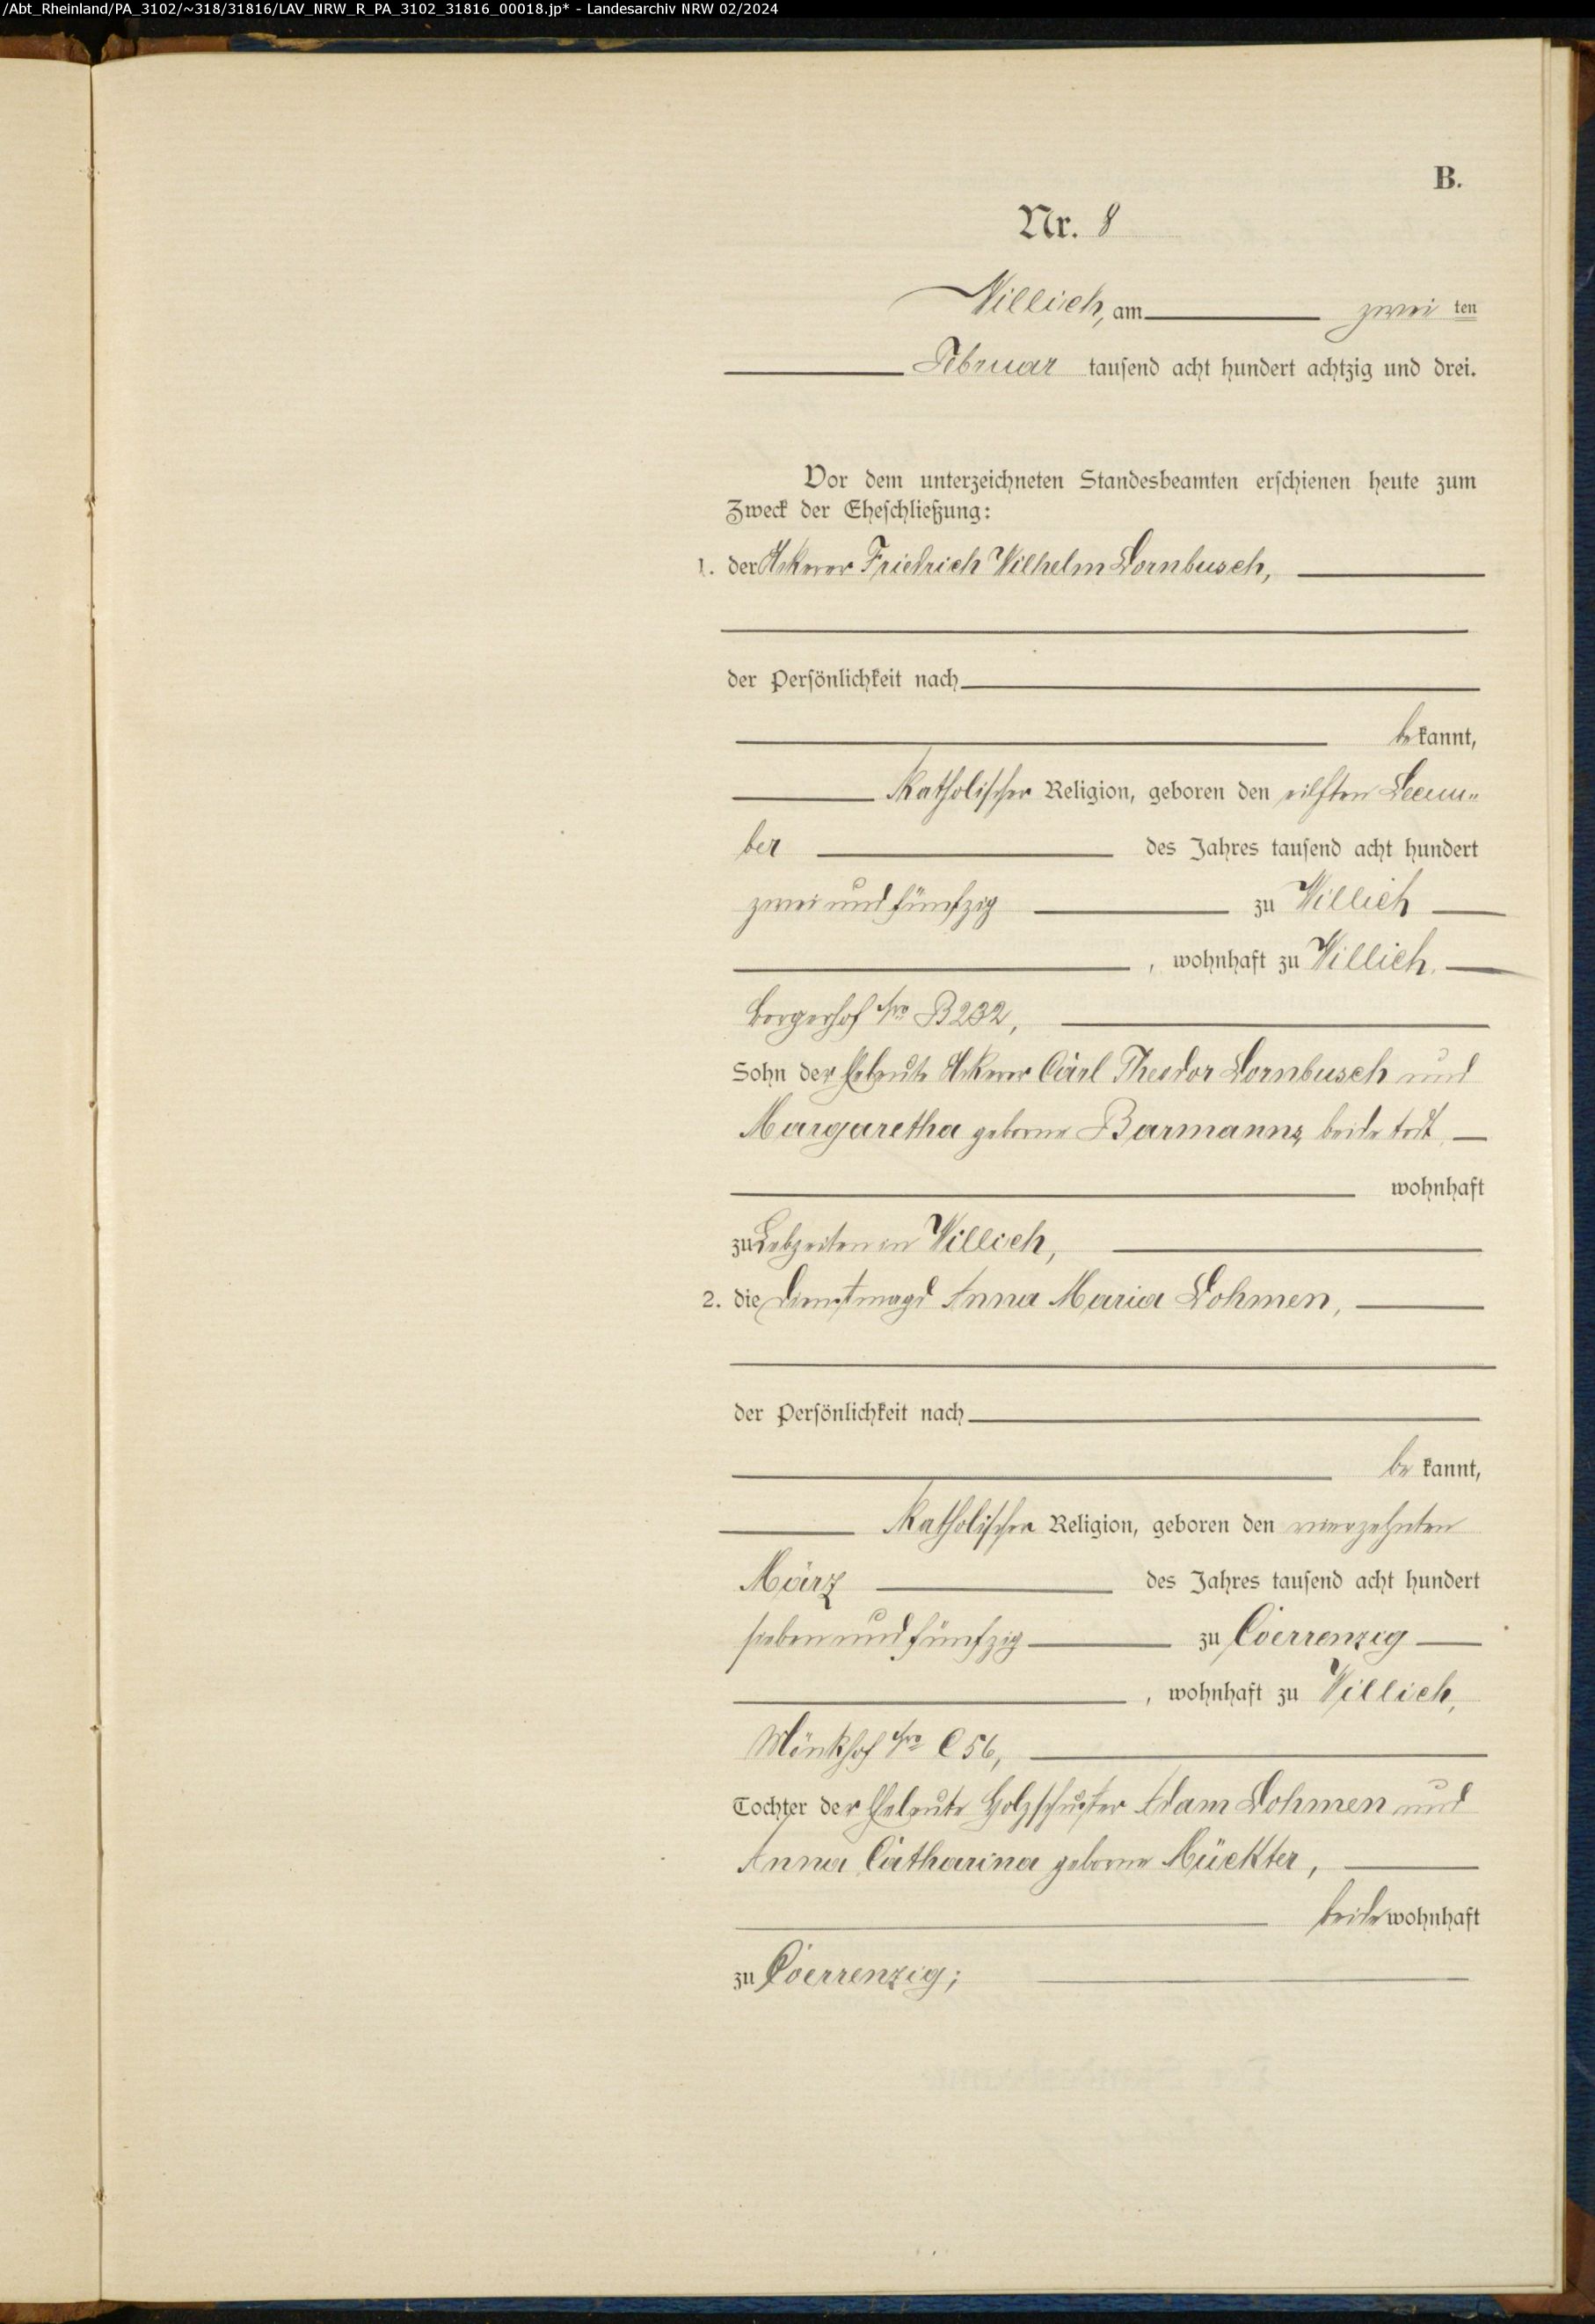 /Abt_Rheinland/PA_3102/~318/31816/LAV_NRW_R_PA_3102_31816_00018.jp* - Landesarchiv NRW 02/2024
B.
Nr. 8
Willich, am zwei ten
Februar tausend acht hundert achtzig und drei.
Vor dem unterzeichneten Standesbeamten erschienen heute zum
Zweck der Eheschließung:
1. der Ackerer Friedrich Wilhelm Dornbusch,
der Persönlichkeit nach
be kannt,
katholischer Religion, geboren den eilften Decem-
ber des Jahres tausend acht hundert
zwei und fünfzig zu Willich
, wohnhaft zu Willich,
Bergerhof Nro B 232,
Sohn der Eheleute Ackerer Carl Theodor Dornbusch und
Margaretha geborne Barmanns, beide todt,
wohnhaft
zu Lebzeiten in Willich,
2. die Dienstmagd Anna Maria Dohmen,
der Persönlichkeit nach
be kannt,
katholischer Religion, geboren den vierzehnten
März des Jahres tausend acht hundert
sieben und fünfzig zu Coerrenzig
, wohnhaft zu Willich,
Mönkhof Nro C 56,
Tochter der Eheleute Holzschuster Adam Dohmen und
Anna Catharina geborne Mückter,
beide wohnhaft
zu Coerrenzig;